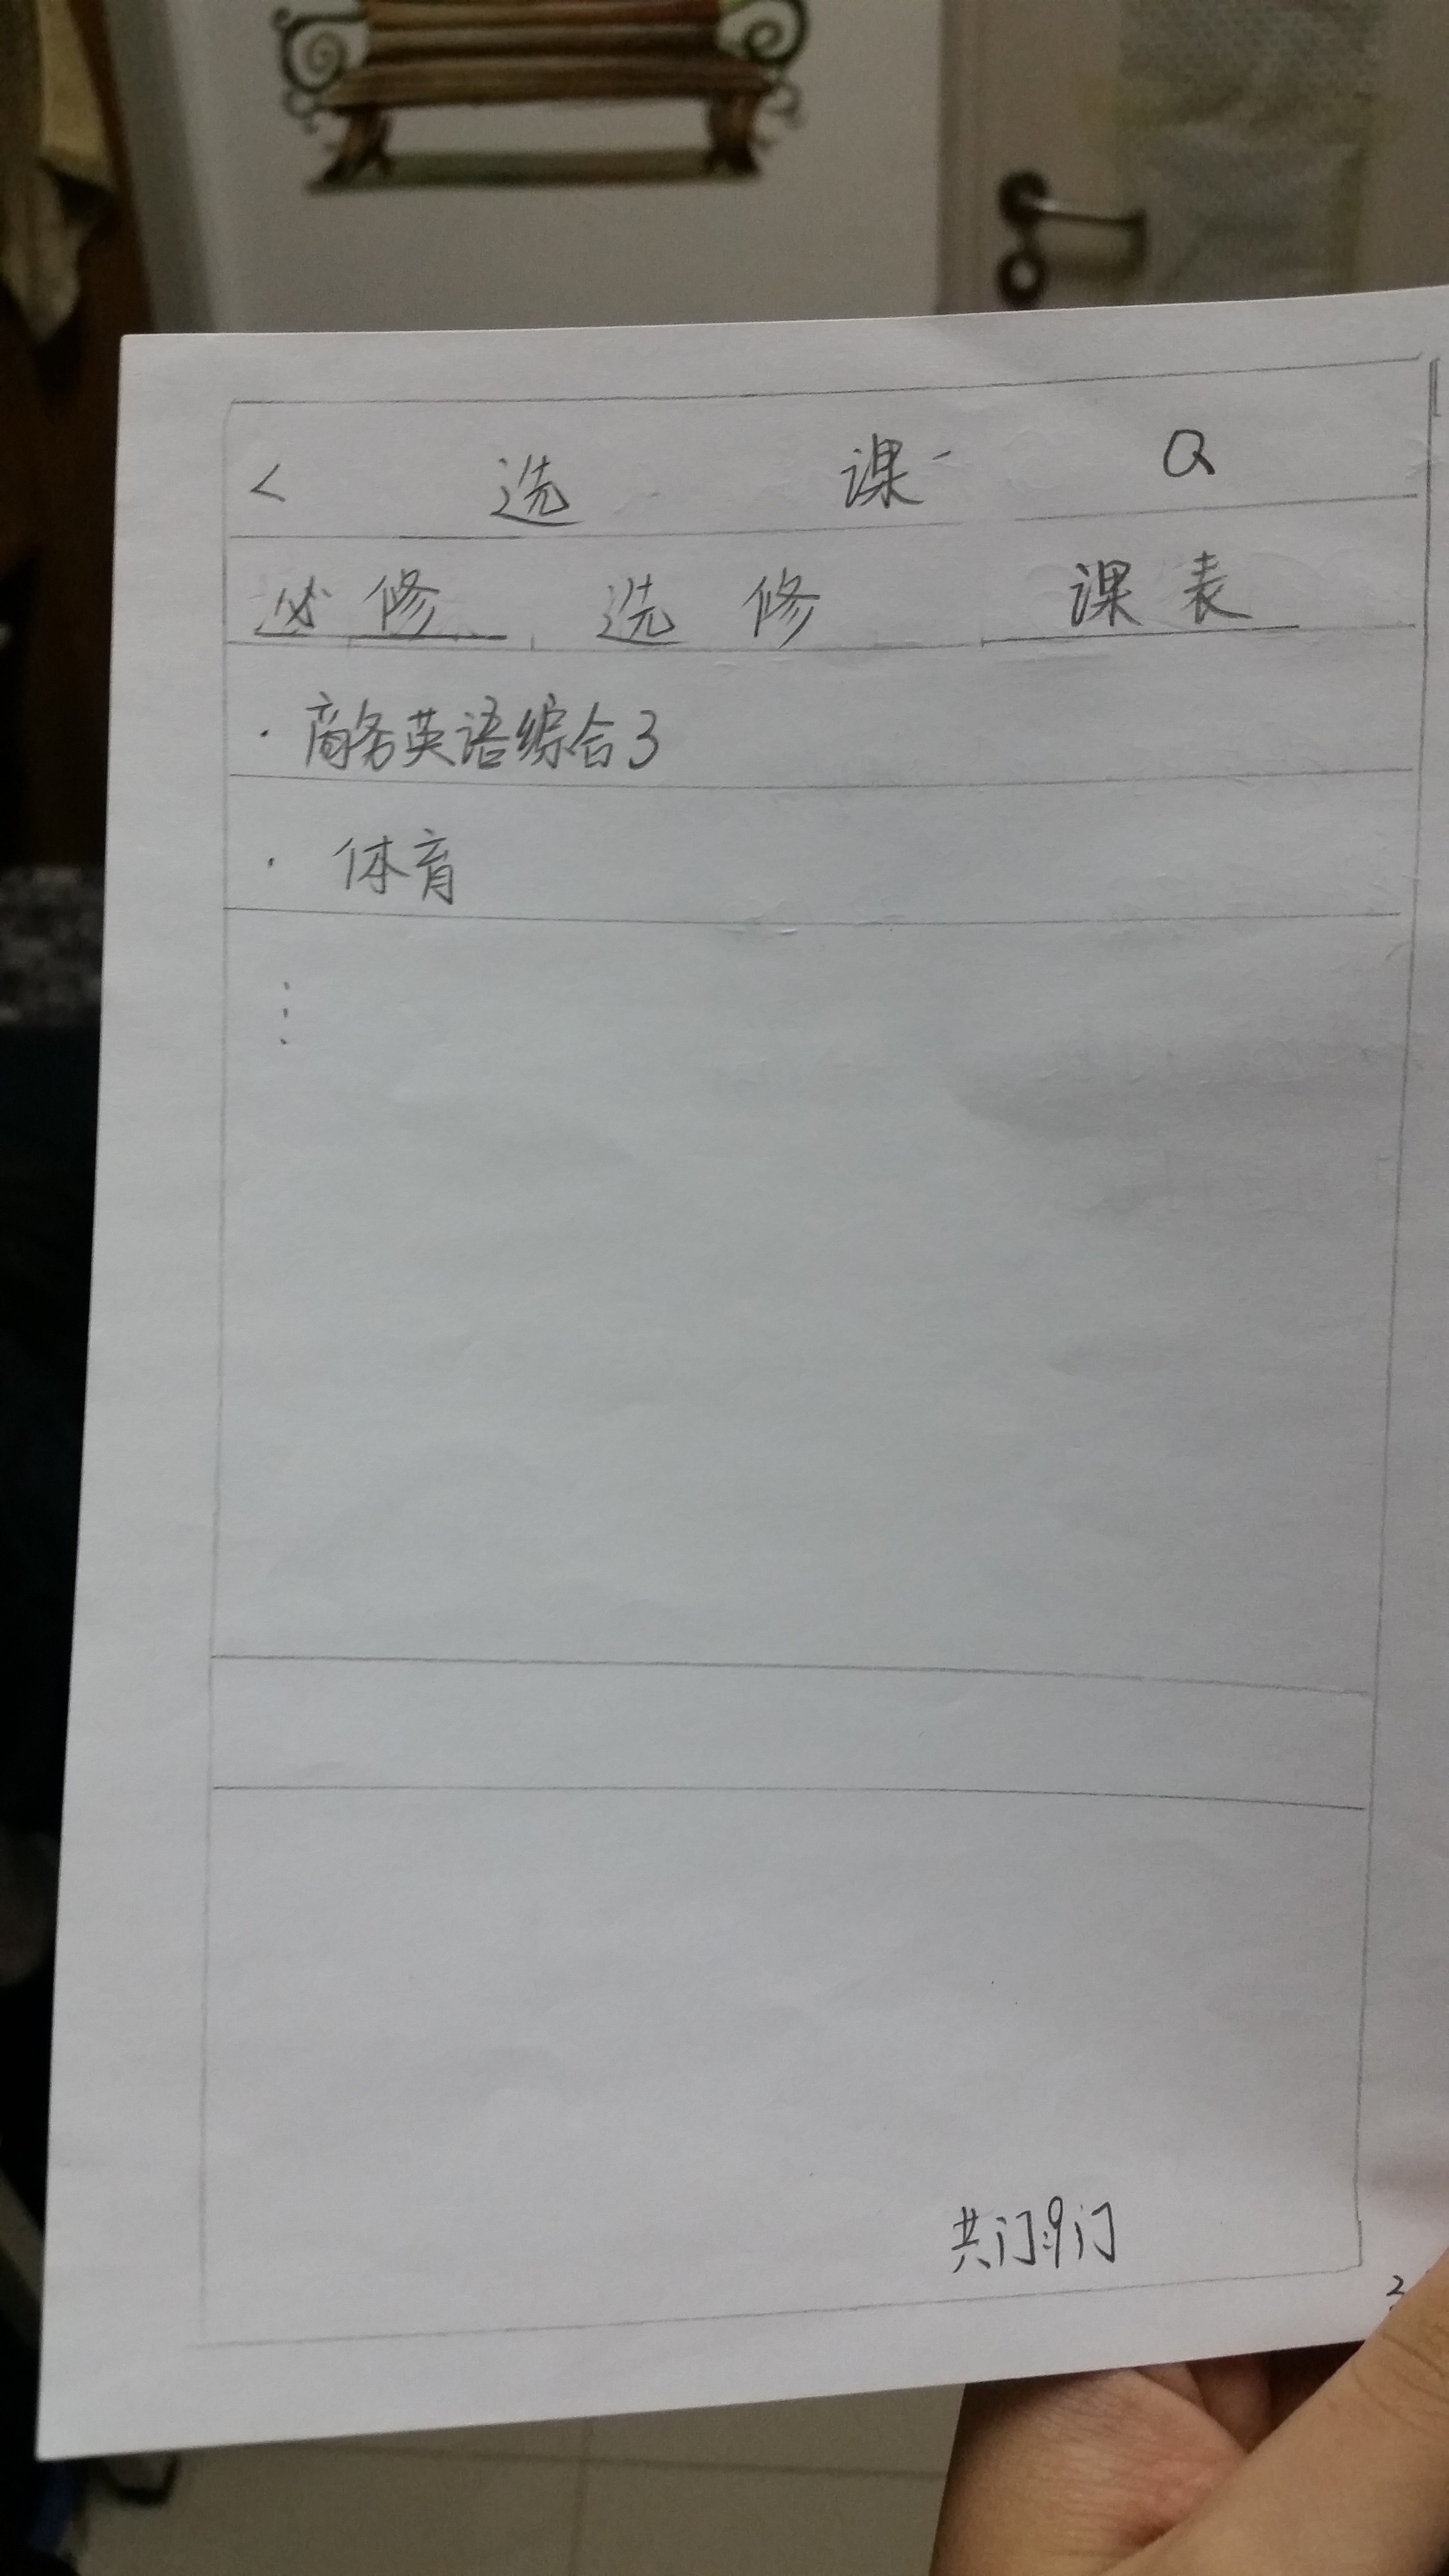 < 选 课 Q
必修 选修 课表
· 商务英语综合3
· 体育
⋮
共门:9门
2